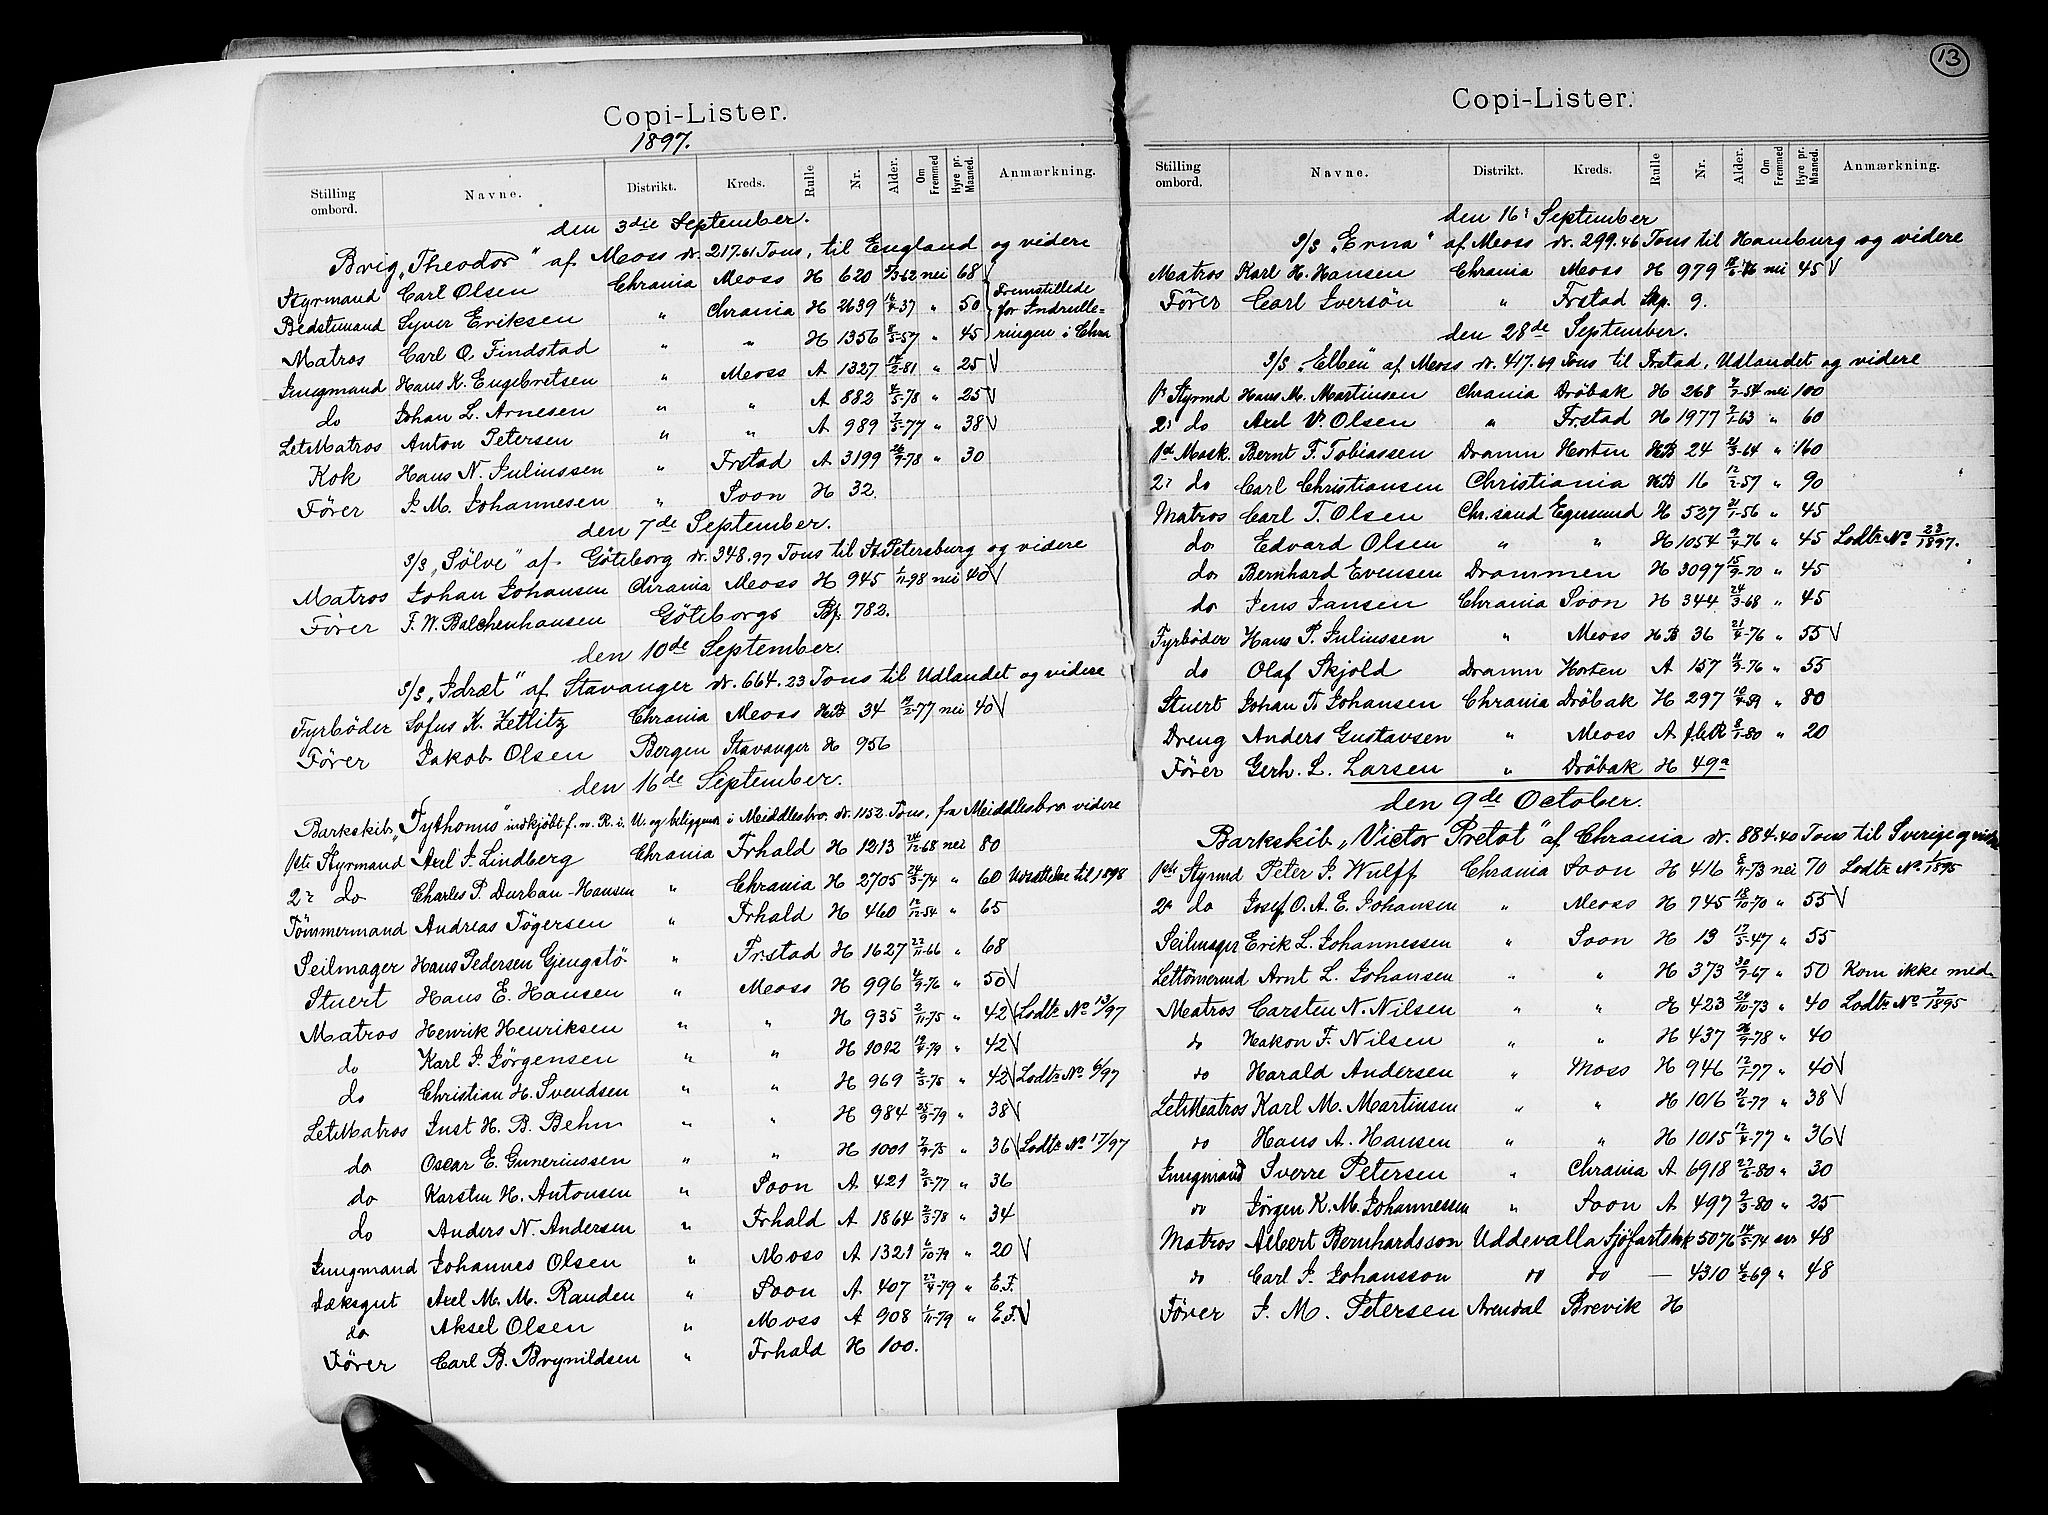 Copi-Lister.
1897.
Stilling ombord. Navne. Distrikt. Kreds. Rulle Nr. Alder. Om Fremmed Hyre pr. Maaned. Anmærkning.
den 3die September.
Brig „Theodor" af Moss dr. 217.61 Tons, til England og videre
Styrmand Carl Olsen Chrania Moss H 620 62 nei 68
Bedstemand Syver Eriksen " Chrania H 2639 16/4-37 " 50 Fremstillede
Matros Carl O. Findstad " " H 1356 8/5-57 " 45 for Indrulle-
ringen i Chra
Jungmand Hans K. Engebretsen " Moss A 1327 81 " 25 V
do Johan L. Arnesen " " A 882 78 " 25 V
LetMatros Anton Petersen " " A 989 77 " 38 V
Kok Hans N. Juliussen " Frstad A 3199 78 " 30
Fører J. M. Johannesen " Soon H 32.
den 7de September.
S/S „Sölve" af Göteborg dr. 348.97 Tons til St. Petersburg og videre
Matros Johan Johansen Chrania Moss H 945 1/11-98 nei 40 V
Fører F. W. Balchenhausen Göteborgs Bf. 782.
den 10de September.
S/S „Idræt" af Stavanger dr. 664.23 Tons til Udlandet og videre
Fyrbøder Sofus K. Zetlitz Chrania Moss HB 34 77 nei 40 V
Fører Jakob Olsen Bergen Stavanger H 956
den 16de September.
Barkskib „Tythonus" indkjøbt f. n. R. i. U. og beliggende i Meiddlesbro, dr. 1152 Tons, fra Meiddlesbro videre
1ste Styrmand Axel J. Lindberg Chrania Frhald H 1213 24/12-68 nei 80
2n do Charles P. Durban-Hansen " Chrania H 2705 24/3-74 " 60 Udsættelse til 1898
Tömmermand Andreas Tögersen " Frhald H 460 12/12-54 " 65
Seilmager Hans Pedersen Gjengstö " Frstad H 1627 22/11-66 " 68
Stuert Hans E. Hansen " Moss H 996 4/9-76 " 50 V
Matros Henrik Henriksen " " H 935 2/11-75 " 42 V Lodtr No 13/97
do Karl J. Jörgensen " " H 1012 19/4-79 " 42 V
do Christian H. Svendsen " " H 969 2/5-75 " 42 V Lodtr No 6/97
LetMatros Just H. B. Behn " " H 984 25/9-79 " 38 V
do Oscar E. Guneriussen " " H 1001 7/9-75 " 36 V Lodtr No 17/97
do Karsten H. Antonsen " Soon A 421 2/5-77 " 36
do Anders N. Andersen " Frhald A 1864 2/3-78 " 34
Jungmand Johannes Olsen " Moss A 1321 6/10-79 " 20 V
Dæksgut Axel M. M. Rauden " Soon A 407 27/4-79 " E.F.
do Aksel Olsen " Moss A 908 1/11-79 " E.F. V
Fører Carl B. Brynildsen " Frhald H 100.
13
Copi-Lister.
Stilling ombord. Navne. Distrikt. Kreds. Rulle Nr. Alder. Om Fremmed Hyre pr. Maaned. Anmærkning.
den 16: September
S/S „Erna" af Moss dr. 299.46 Tons til Hamburg og videre
Matros Karl H. Hansen Chrania Moss H 979 76 nei 45 V
Fører Carl Iversön " Frstad Skp. 9.
den 28de September.
S/S „Elben" af Moss dr. 417.69 Tons til Frstad, Udlandet og videre
1st Styrmd Hans M. Martinsen Chrania Dröbak H 268 54 nei 100
2n do Axel V. Olsen " Frstad H 1977 63 " 60
1st Mask. Bernt F. Tobiassen Dramn Horten HB 24 64 " 160
2n do Carl Christiansen Christiania HB 16 12/2-57 " 90
Matros Carl T. Olsen Chr.sand Egersund H 527 21/1-56 " 45
do Edvard Olsen " " H 1054 9/4-76 " 45 Lodtr No 23/1897.
do Bernhard Evensen Drammen H 3097 15/9-70 " 45
do Jens Jansen Chrania Soon H 344 24/3-68 " 45
Fyrbøder Hans P. Juliussen " Moss HB 36 21/4-76 " 55 V
do Olaf Skjold Dramn Horten A 157 76 " 55
Stuert Johan T. Johansen Chrania Dröbak H 297 59 " 80
Dreng Anders Gustavsen " Moss A f.b.R 8/1-80 " 20
Fører Gerh. L. Larsen " Dröbak H 49a
den 9de October.
Barkskib „Victor Pretot" af Chrania dr. 884.40 Tons til Sverige og videre
1ste Styrmd Peter J. Wulff Chrania Soon H 416 8/11-73 nei 70 Lodtr No 1/1895
2n do Josef O. A. E. Johansen " Moss H 745 18/10-70 " 55 V
Seilmager Erik L. Johannessen " Soon H 13 17/5-47 " 55
Lettömermd Arnt L. Johansen " " H 373 30/9-67 " 50 Kom ikke med
Matros Carsten N. Nilsen " " H 423 28/10-73 " 40 Lodtr No 7/1895
do Hakon F. Nilsen " " H 437 26/9-78 " 40
do Harald Andersen " Moss H 946 12/1-77 " 40 V
LetMatros Karl M. Martinsen " " H 1016 77 " 38 V
do Hans A. Hansen " " H 1015 12/4-77 " 36 V
Jungmand Sverre Petersen " Chrania A 6918 80 " 30
do Jörgen K. M. Johannessen " Soon A 497 80 " 25
Matros Albert Bernhardsson Uddevalla Sjöfartsbk 5076 14/5-74 sv 48
do Carl J. Johansson do do — 4310 4/2-69 " 48
Fører J. M. Petersen Arendal Brevik H